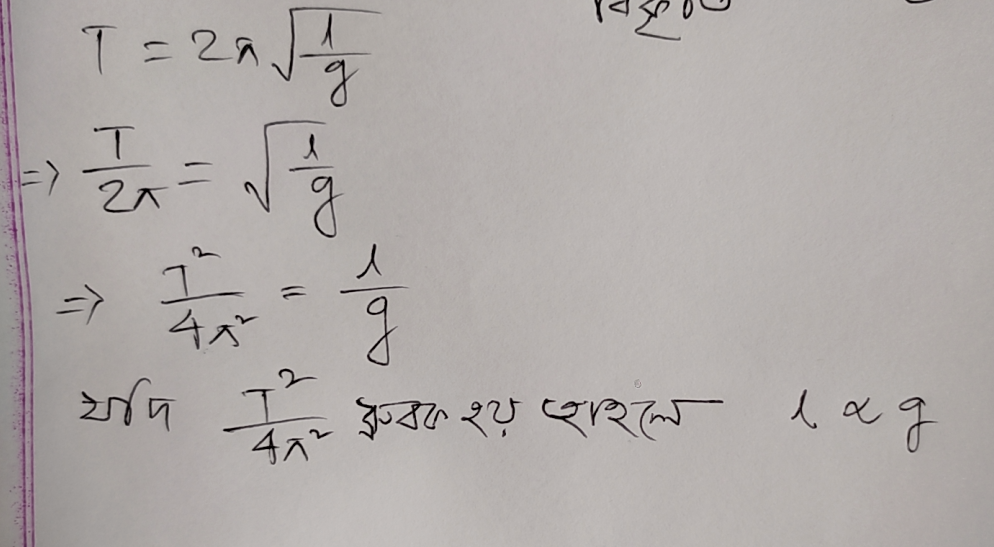 T = 2π√(l/g)
⇒ T/2π = √(l/g)
⇒ T²/4π² = l/g
যদি T²/4π² ধ্রুবক হয় তাহলে l ∝ g